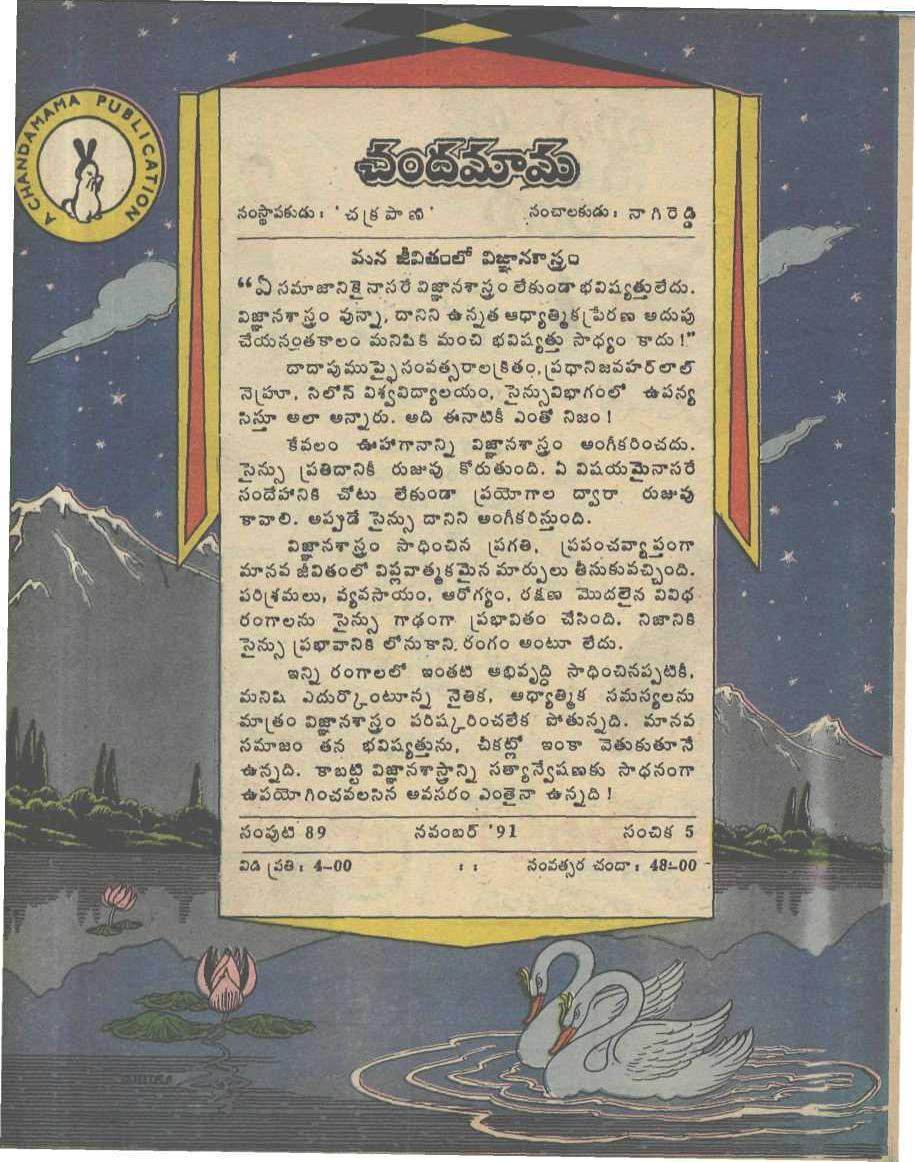 A CHANDAMAMA PUBLICATION
చందమామ
సంస్థాపకుడు : ' చక్రపాణి ' సంచాలకుడు : నాగిరెడ్డి
మన జీవితంలో విజ్ఞానశాస్త్రం
“ఏ సమాజానికైనాసరే విజ్ఞానశాస్త్రం లేకుండా భవిష్యత్తులేదు.
విజ్ఞానశాస్త్రం వున్నా, దానిని ఉన్నత ఆధ్యాత్మిక ప్రేరణ అదుపు
చేయనంతకాలం మనిషికి మంచి భవిష్యత్తు సాధ్యం కాదు !”
దాదాపుముప్ఫైసంవత్సరాలక్రితం, ప్రధానిజవహర్‌లాల్
నెహ్రూ, సిలోన్ విశ్వవిద్యాలయం, సైన్సువిభాగంలో ఉపన్య
సిస్తూ అలా అన్నారు. అది ఈనాటికీ ఎంతో నిజం !
కేవలం ఊహాగానాన్ని విజ్ఞానశాస్త్రం అంగీకరించదు.
సైన్సు ప్రతిదానికీ రుజువు కోరుతుంది. ఏ విషయమైనాసరే
సందేహానికి చోటు లేకుండా ప్రయోగాల ద్వారా రుజువు
కావాలి. అప్పుడే సైన్సు దానిని అంగీకరిస్తుంది.
విజ్ఞానశాస్త్రం సాధించిన ప్రగతి, ప్రపంచవ్యాప్తంగా
మానవ జీవితంలో విప్లవాత్మకమైన మార్పులు తీసుకువచ్చింది.
పరిశ్రమలు, వ్యవసాయం, ఆరోగ్యం, రక్షణ మొదలైన వివిధ
రంగాలను సైన్సు గాఢంగా ప్రభావితం చేసింది. నిజానికి
సైన్సు ప్రభావానికి లోనుకాని రంగం అంటూ లేదు.
ఇన్ని రంగాలలో ఇంతటి అభివృద్ధి సాధించినప్పటికీ,
మనిషి ఎదుర్కొంటూన్న నైతిక, ఆధ్యాత్మిక సమస్యలను
మాత్రం విజ్ఞానశాస్త్రం పరిష్కరించలేక పోతున్నది. మానవ
సమాజం తన భవిష్యత్తును, చీకట్లో ఇంకా వెతుకుతూనే
ఉన్నది. కాబట్టి విజ్ఞానశాస్త్రాన్ని సత్యాన్వేషణకు సాధనంగా
ఉపయోగించవలసిన అవసరం ఎంతైనా ఉన్నది !
సంపుటి 89 నవంబర్ '91 సంచిక 5
విడి ప్రతి : 4–00 : : సంవత్సర చందా : 48–00